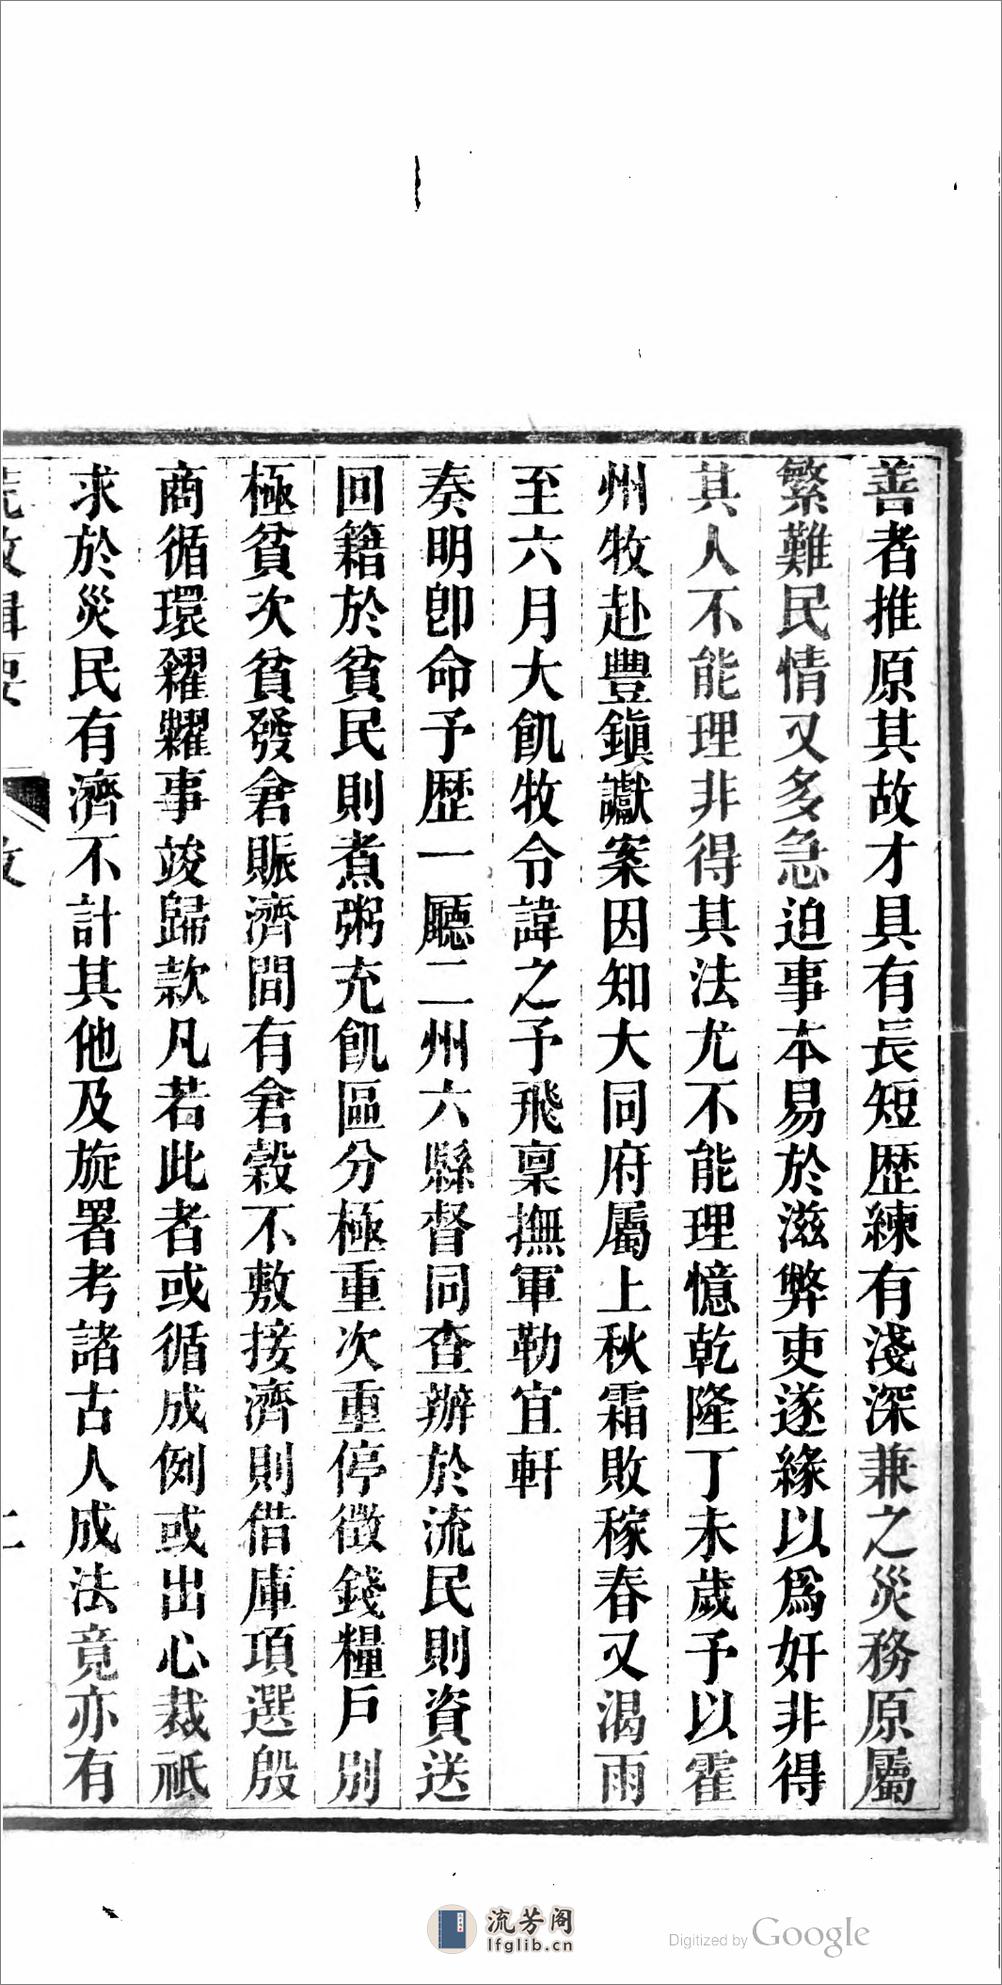 善者推原其故才具有長短歷練有淺深兼之災務原屬
繁難民情又多急迫事本易於滋弊吏遂緣以爲奸非得
其人不能理非得其法尤不能理憶乾隆丁未歲予以霍
州牧赴豐鎭讞案因知大同府屬上秋霜敗稼春又渴雨
至六月大飢牧令諱之予飛稟撫軍勒宜軒
奏明卽命予歷一廳二州六縣督同查辦於流民則資送
回籍於貧民則煮粥充飢區分極重次重停徵錢糧戶別
極貧次貧發倉賑濟間有倉穀不敷接濟則借庫項選殷
商循環糴糶事竣歸款凡若此者或循成例或出心裁祗
求於災民有濟不計其他及旋署考諸古人成法竟亦有
流芳阁
lfglib.cn
Digitized by Google